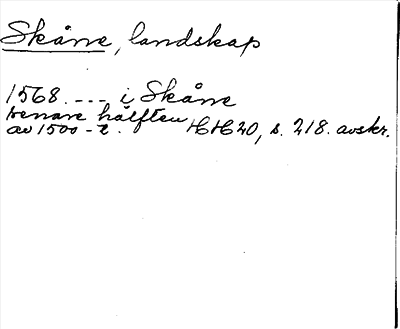 Skåne, landskap
1568. --- i Skåne
senare hälften
av 1500-t. HH 20, s. 218. avskr.